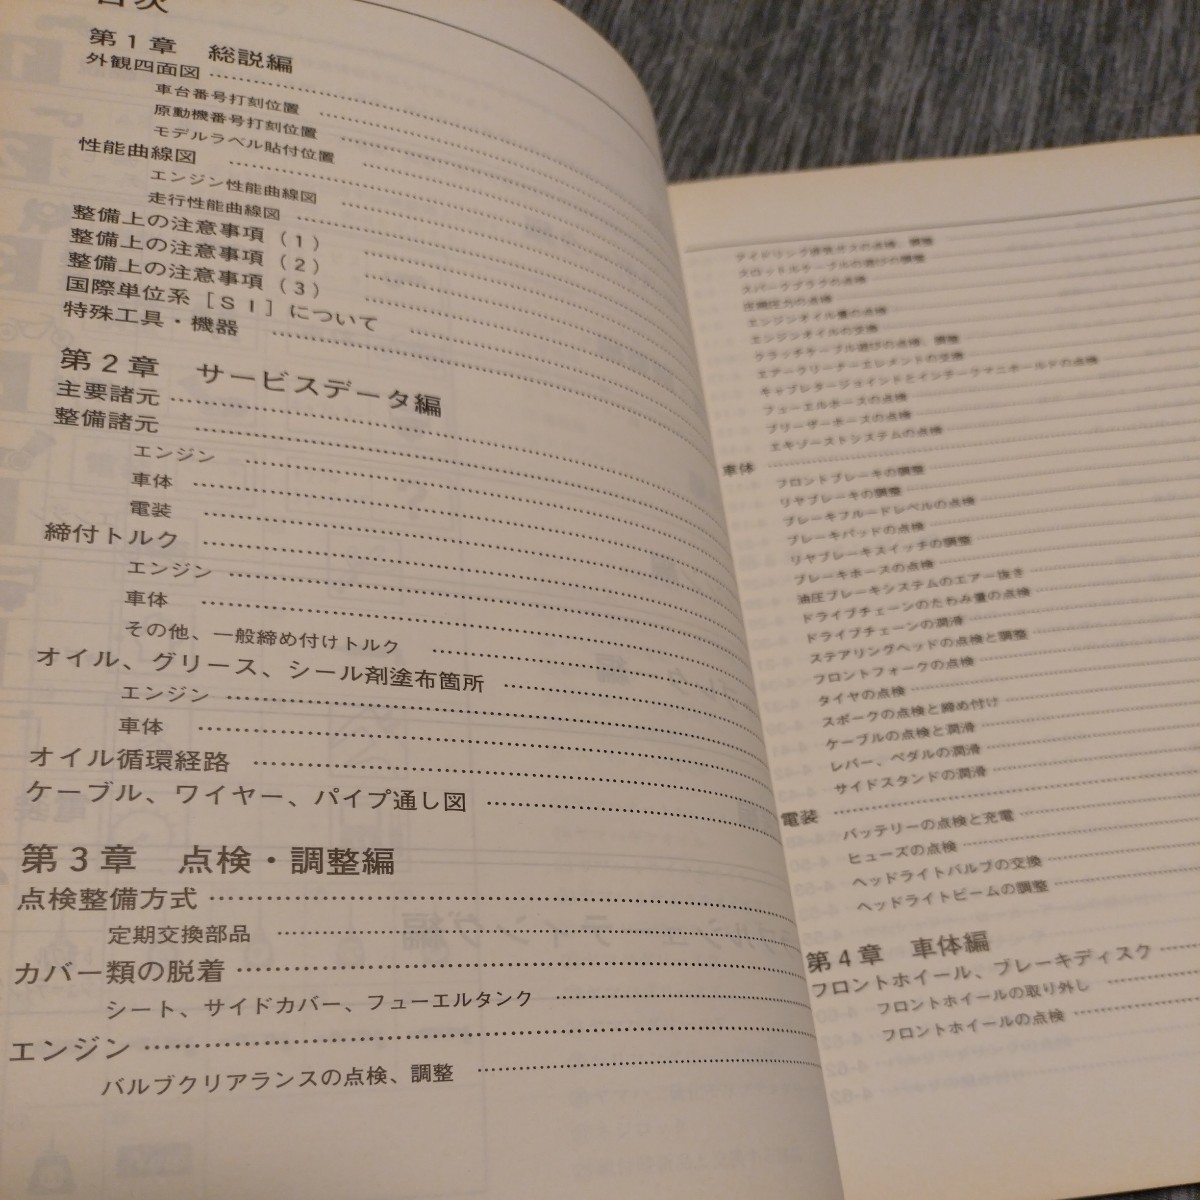 目次
第1章 総説編
外観四面図
車台番号打刻位置
原動機番号打刻位置
モデルラベル貼付位置
性能曲線図
エンジン性能曲線図
走行性能曲線図
整備上の注意事項（1）
整備上の注意事項（2）
整備上の注意事項（3）
国際単位系［SI］について
特殊工具・機器
第2章 サービスデータ編
主要諸元
整備諸元
エンジン
車体
電装
締付トルク
エンジン
車体
その他、一般締め付けトルク
オイル、グリース、シール剤塗布箇所
エンジン
車体
オイル循環経路
ケーブル、ワイヤー、パイプ通し図
第3章 点検・調整編
点検整備方式
定期交換部品
カバー類の脱着
シート、サイドカバー、フューエルタンク
エンジン
バルブクリアランスの点検、調整
アイドリング排気ガスの点検、調整
スロットルケーブルの遊びの調整
スパークプラグの点検
圧縮圧力の点検
エンジンオイル量の点検
エンジンオイルの交換
クラッチケーブル遊びの点検、調整
エアークリーナーエレメントの交換
キャブレタージョイントとインテークマニホールドの点検
フューエルホースの点検
ブリーザーホースの点検
エキゾーストシステムの点検
車体
フロントブレーキの調整
リヤブレーキの調整
ブレーキフルードレベルの点検
ブレーキパッドの点検
リヤブレーキスイッチの調整
ブレーキホースの点検
油圧ブレーキシステムのエアー抜き
ドライブチェーンのたわみ量の点検
ドライブチェーンの潤滑
ステアリングヘッドの点検と調整
フロントフォークの点検
タイヤの点検
スポークの点検と締め付け
ケーブルの点検と潤滑
レバー、ペダルの潤滑
サイドスタンドの潤滑
電装
バッテリーの点検と充電
ヒューズの点検
ヘッドライトバルブの交換
ヘッドライトビームの調整
第4章 車体編
フロントホイール、ブレーキディスク
フロントホイールの取り外し
フロントホイールの点検